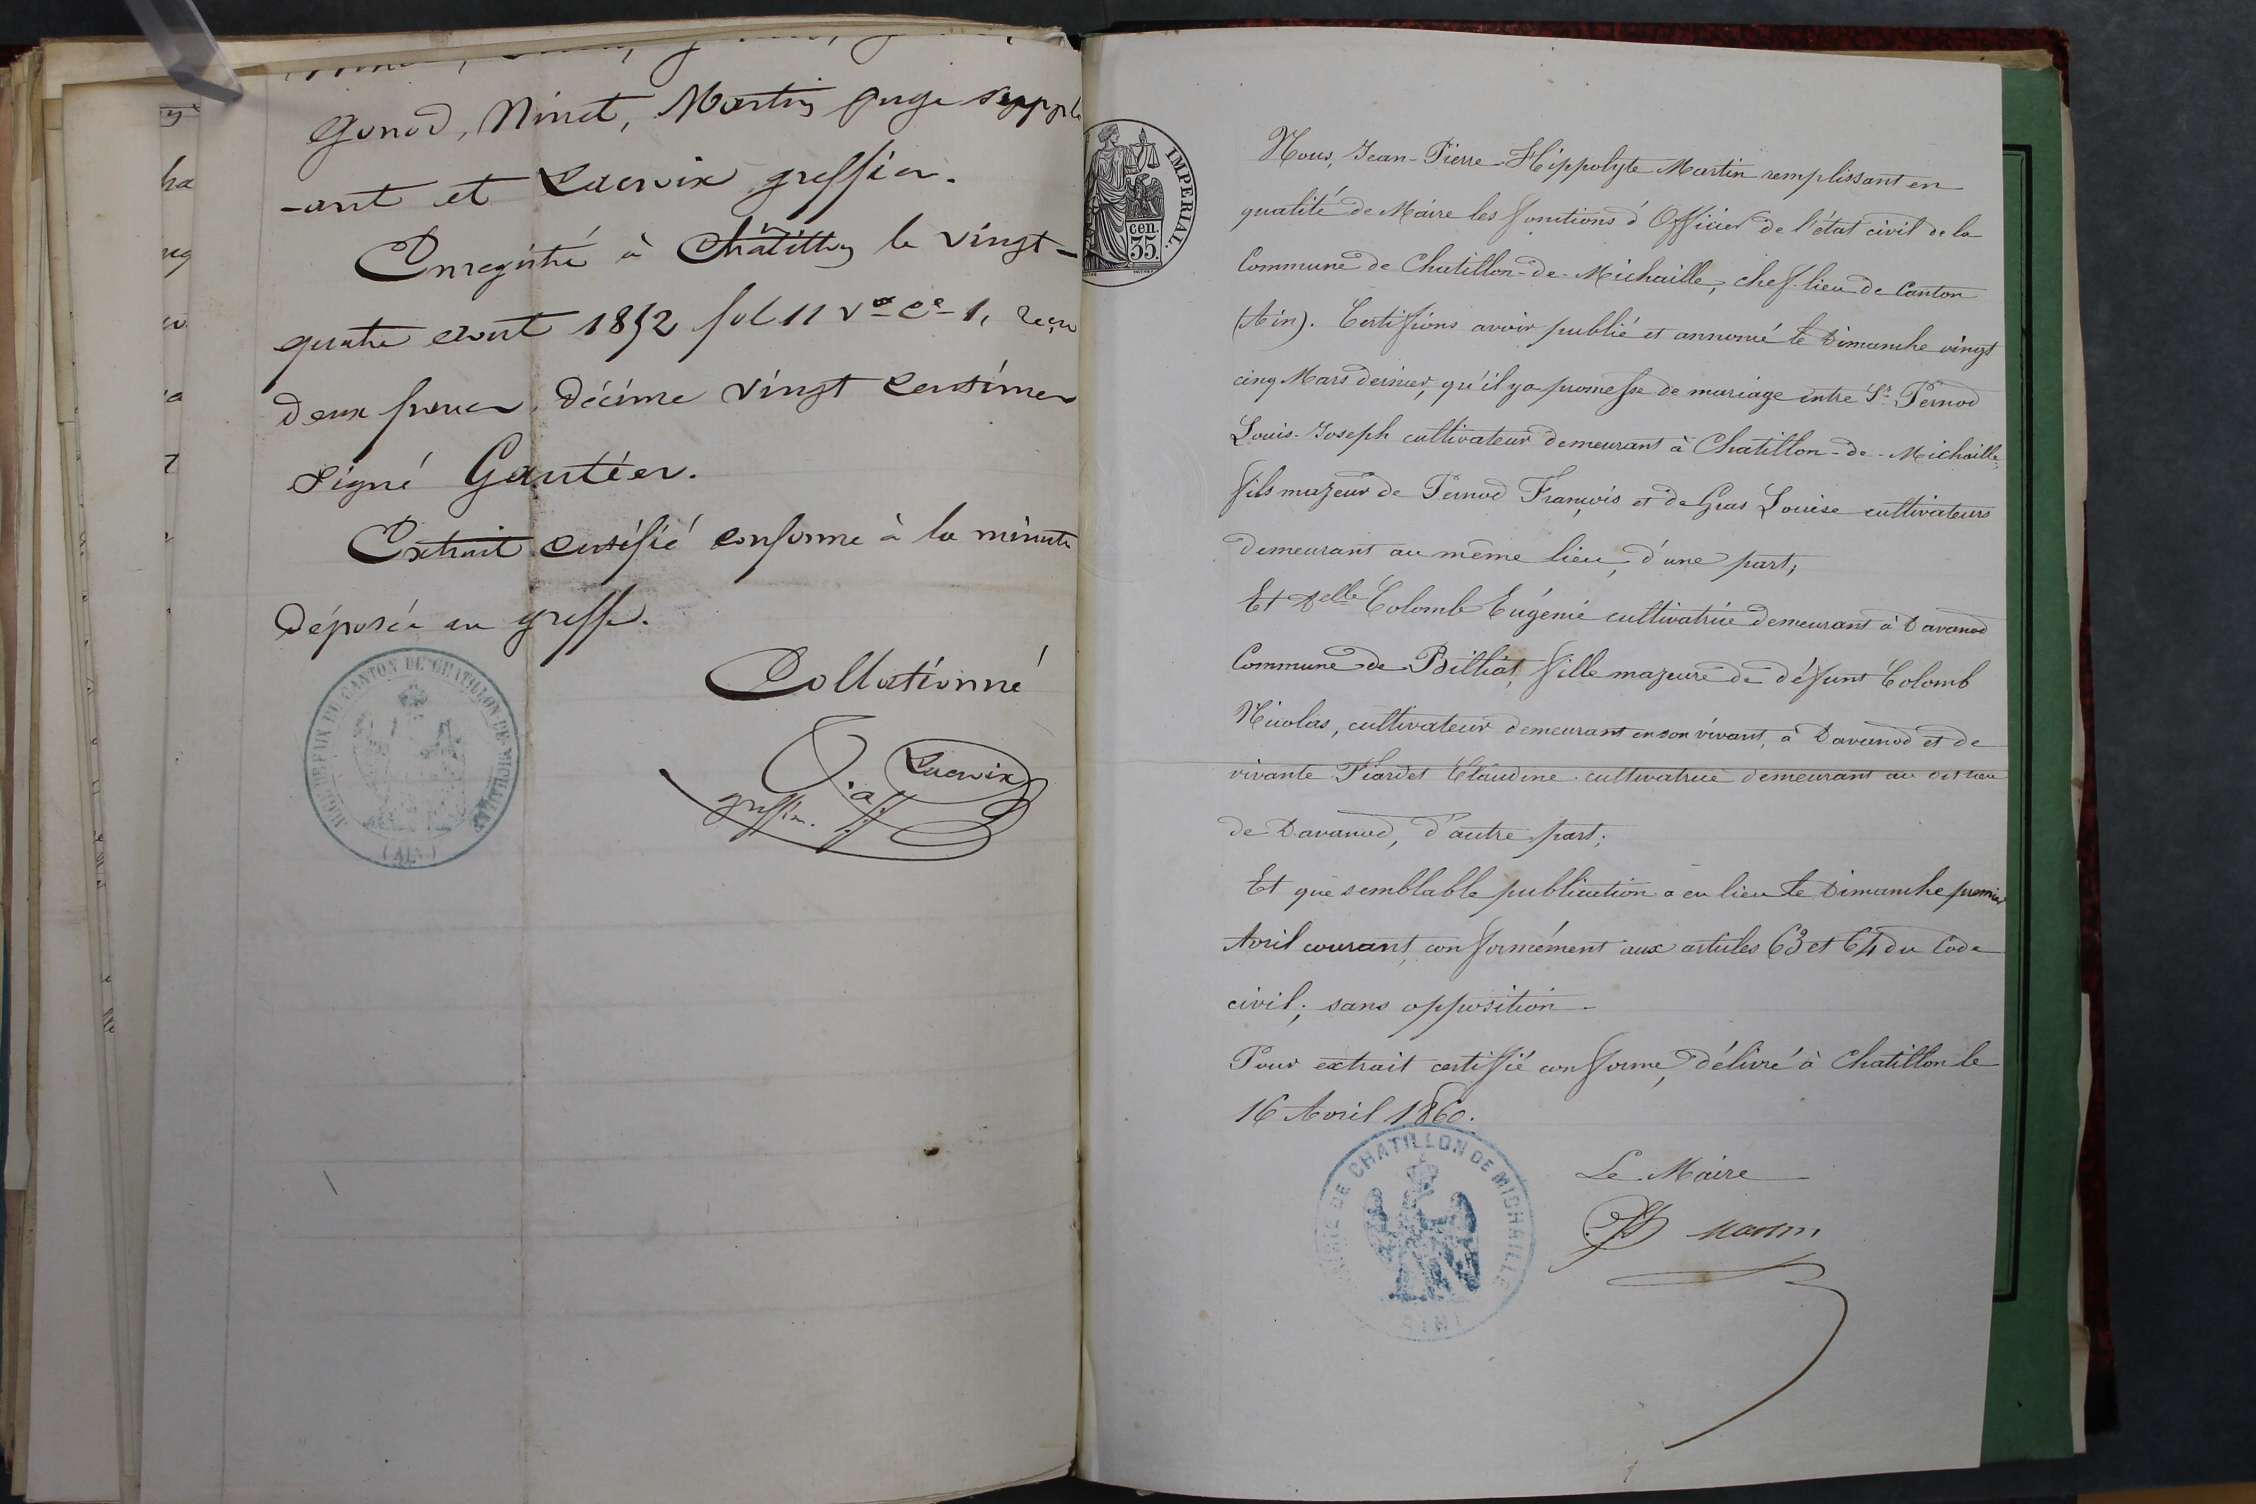 Gonod, Ninet, Martin juge suppplé
-ant et Lacroix greffier.
Enregistré à Châtillon le vingt-
quatre août 1852 fol 11 Vo Ce 1, reçu
deux francs, décime vingt centimes
signé Gautier.
Extrait certifié conforme à la minute
déposée au greffe.
Collationné
Lacroix
greffier.
JUGE DE PAIX DU CANTON DE CHATILLON-DE-MICHAILLE
(AIN)
IMPERIAL.
35 cen.
Nous, Jean-Pierre-Hippolyte Martin remplissant en
qualité de Maire les fonctions d'Officier de l'état civil de la
Commune de Chatillon-de-Michaille, chef-lieu de Canton
(Ain). Certifions avoir publié et annoncé le Dimanche vingt
cinq Mars dernier, qu'il y a promesse de mariage entre Sr Pernod
Louis-Joseph cultivateur demeurant à Chatillon-de-Michaille,
fils majeur de Pernod François et de Gras Louise cultivateurs
demeurant au même lieu, d'une part,
Et Delle Colomb Eugénie cultivatrice demeurant à Davanod
Commune de Billiat, fille majeure de défunt Colomb
Nicolas, cultivateur demeurant en son vivant, à Davanod et de
vivante Piardet Claudine cultivatrice demeurant au dit lieu
de Davanod, d'autre part;
Et que semblable publication a eu lieu le Dimanche premier
Avril courant, conformément aux articles 63 et 64 du Code
civil; sans opposition.
Pour extrait certifié conforme, délivré à Chatillon le
16 Avril 1860.
MAIRIE DE CHATILLON DE MICHAILLE
(AIN)
Le Maire
Martin